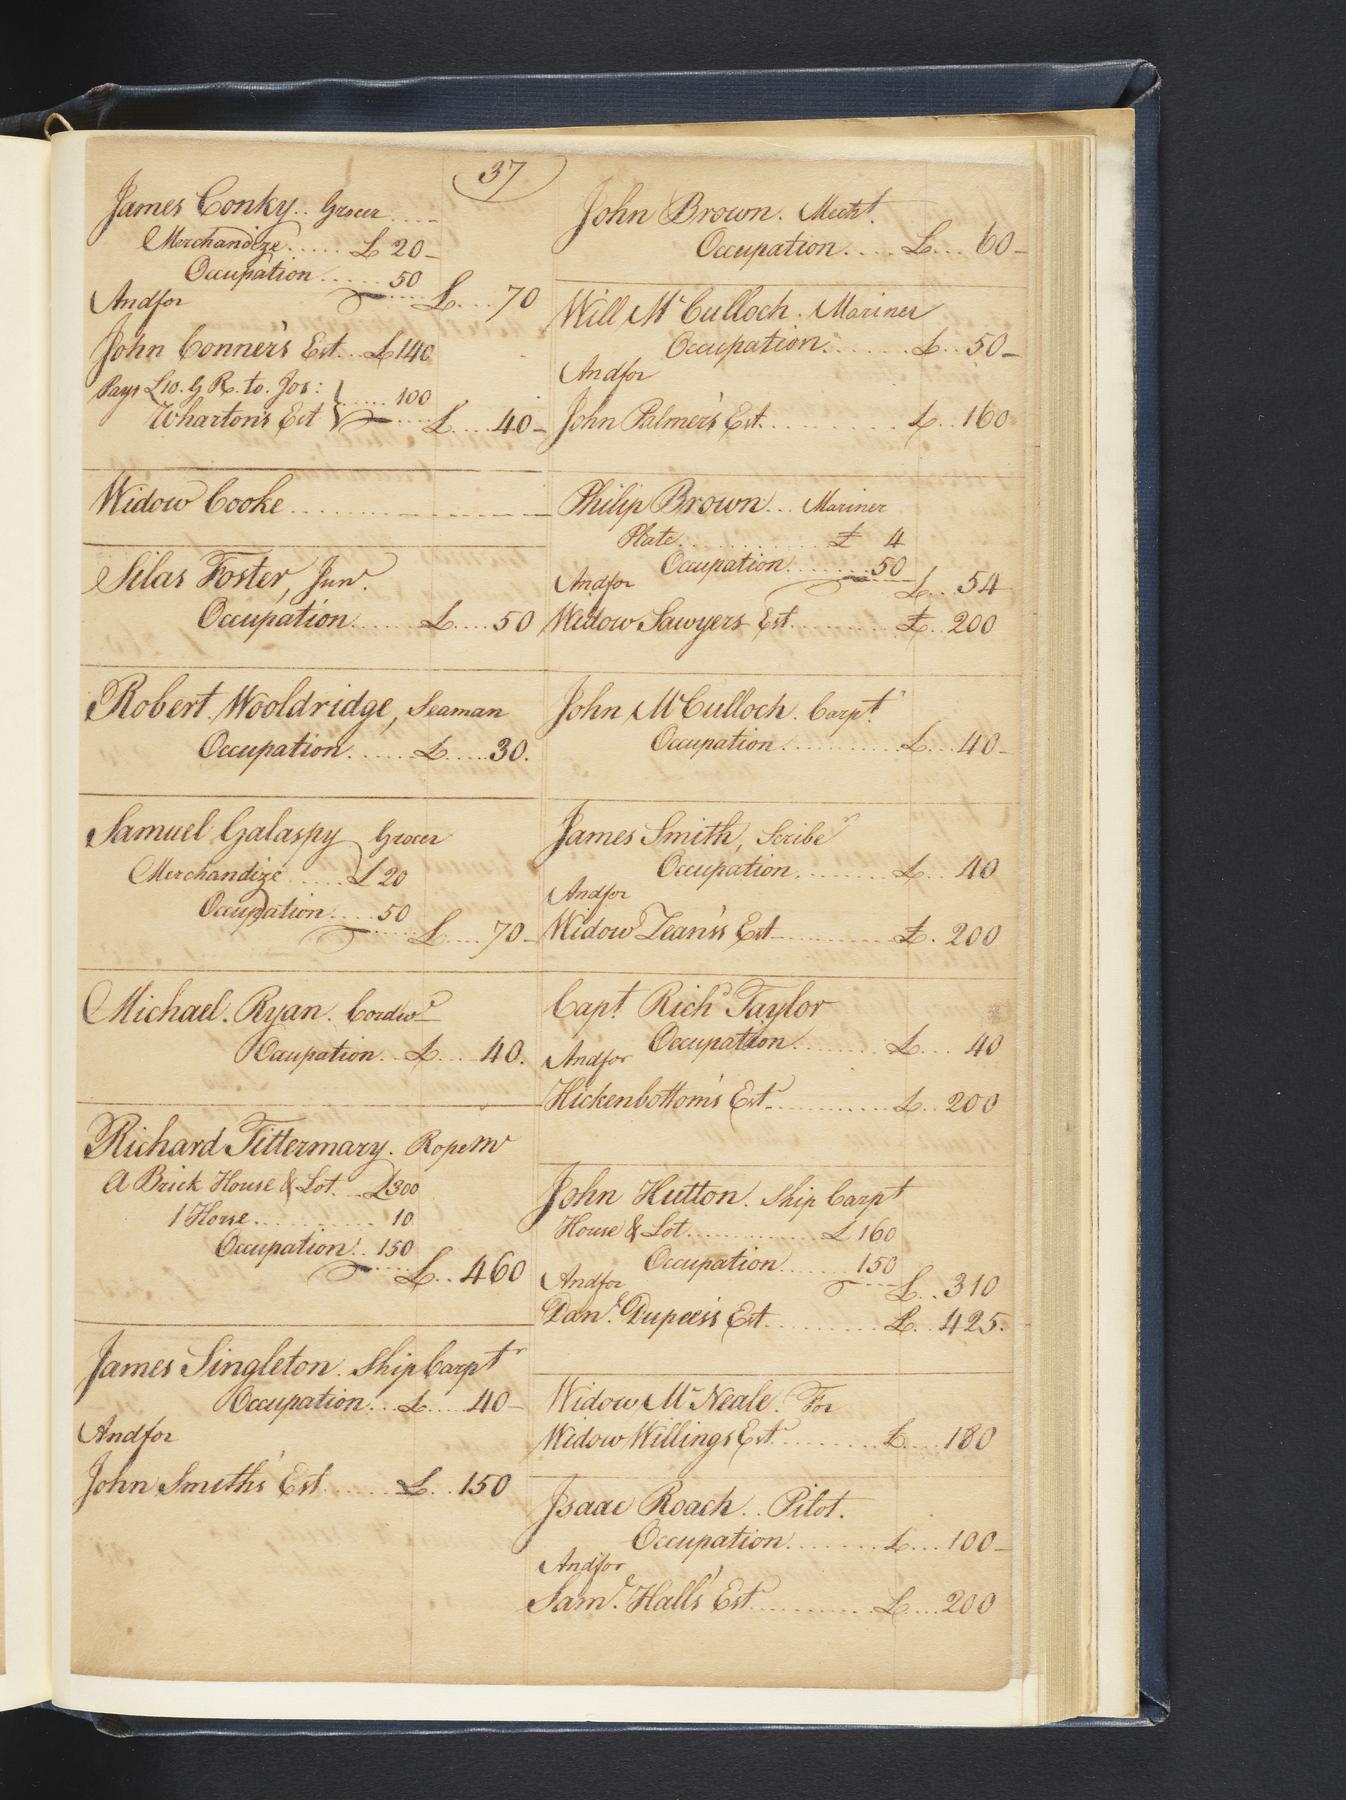 37
James Conky.. Grocer....
Merchandize..... £ 20-
Occupation...... 50
Andfor £.... 70
John Conner's Est... £140
Pays £10. G R. to. Jos: } ..... 100
Wharton's Est } £.... 40-
Widow Cooke..............
Silas Foster, Junr.
Occupation..... £.... 50
Robert Wooldridge, Seaman
Occupation...... £.... 30.
Samuel Galaspy Grocer
Merchandize...... £ 20
Occupation.... 50
£.... 70-
Michael. Ryan. Cordwr
Occupation... £.... 40.
Richard Tittermary. Rope Mr
A Brick House & Lot... £300
1 Horse............ 10
Occupation... 150
£.. 460
James Singleton. Ship Carptr
Occupation... £.... 40-
Andfor
John Smith's Est...... £.. 150
John Brown. Mercht.
Occupation.... £... 60-
Will McCulloch. Mariner
Occupation....... £... 50-
Andfor
John Palmer's Est.......... £... 160
Philip Brown... Mariner
Plate............. £ 4
Occupation....... 50
Andfor £.. 54
Widow Sawyers Est.......... £.. 200
John McCulloch. Carpt.
Occupation.......... £... 40-
James Smith, Scribr
Occupation........ £... 40
Andfor
Widow Leans's Est........... £. 200
Capt. Richd Taylor
Occupation........ £.... 40
Andfor
Hickenbottom's Est........... £.. 200
John Hutton. Ship Carpt
House & Lot............ £ 160
Occupation...... 150
Andfor £.. 310
Danl. Dupee's Est.......... £.. 425.
Widow McNeale. For
Widow Willings Est......... £... 180
Isaac Roach.. Pilot.
Occupation........ £... 100-
Andfor
Saml. Hall's Est........... £... 200